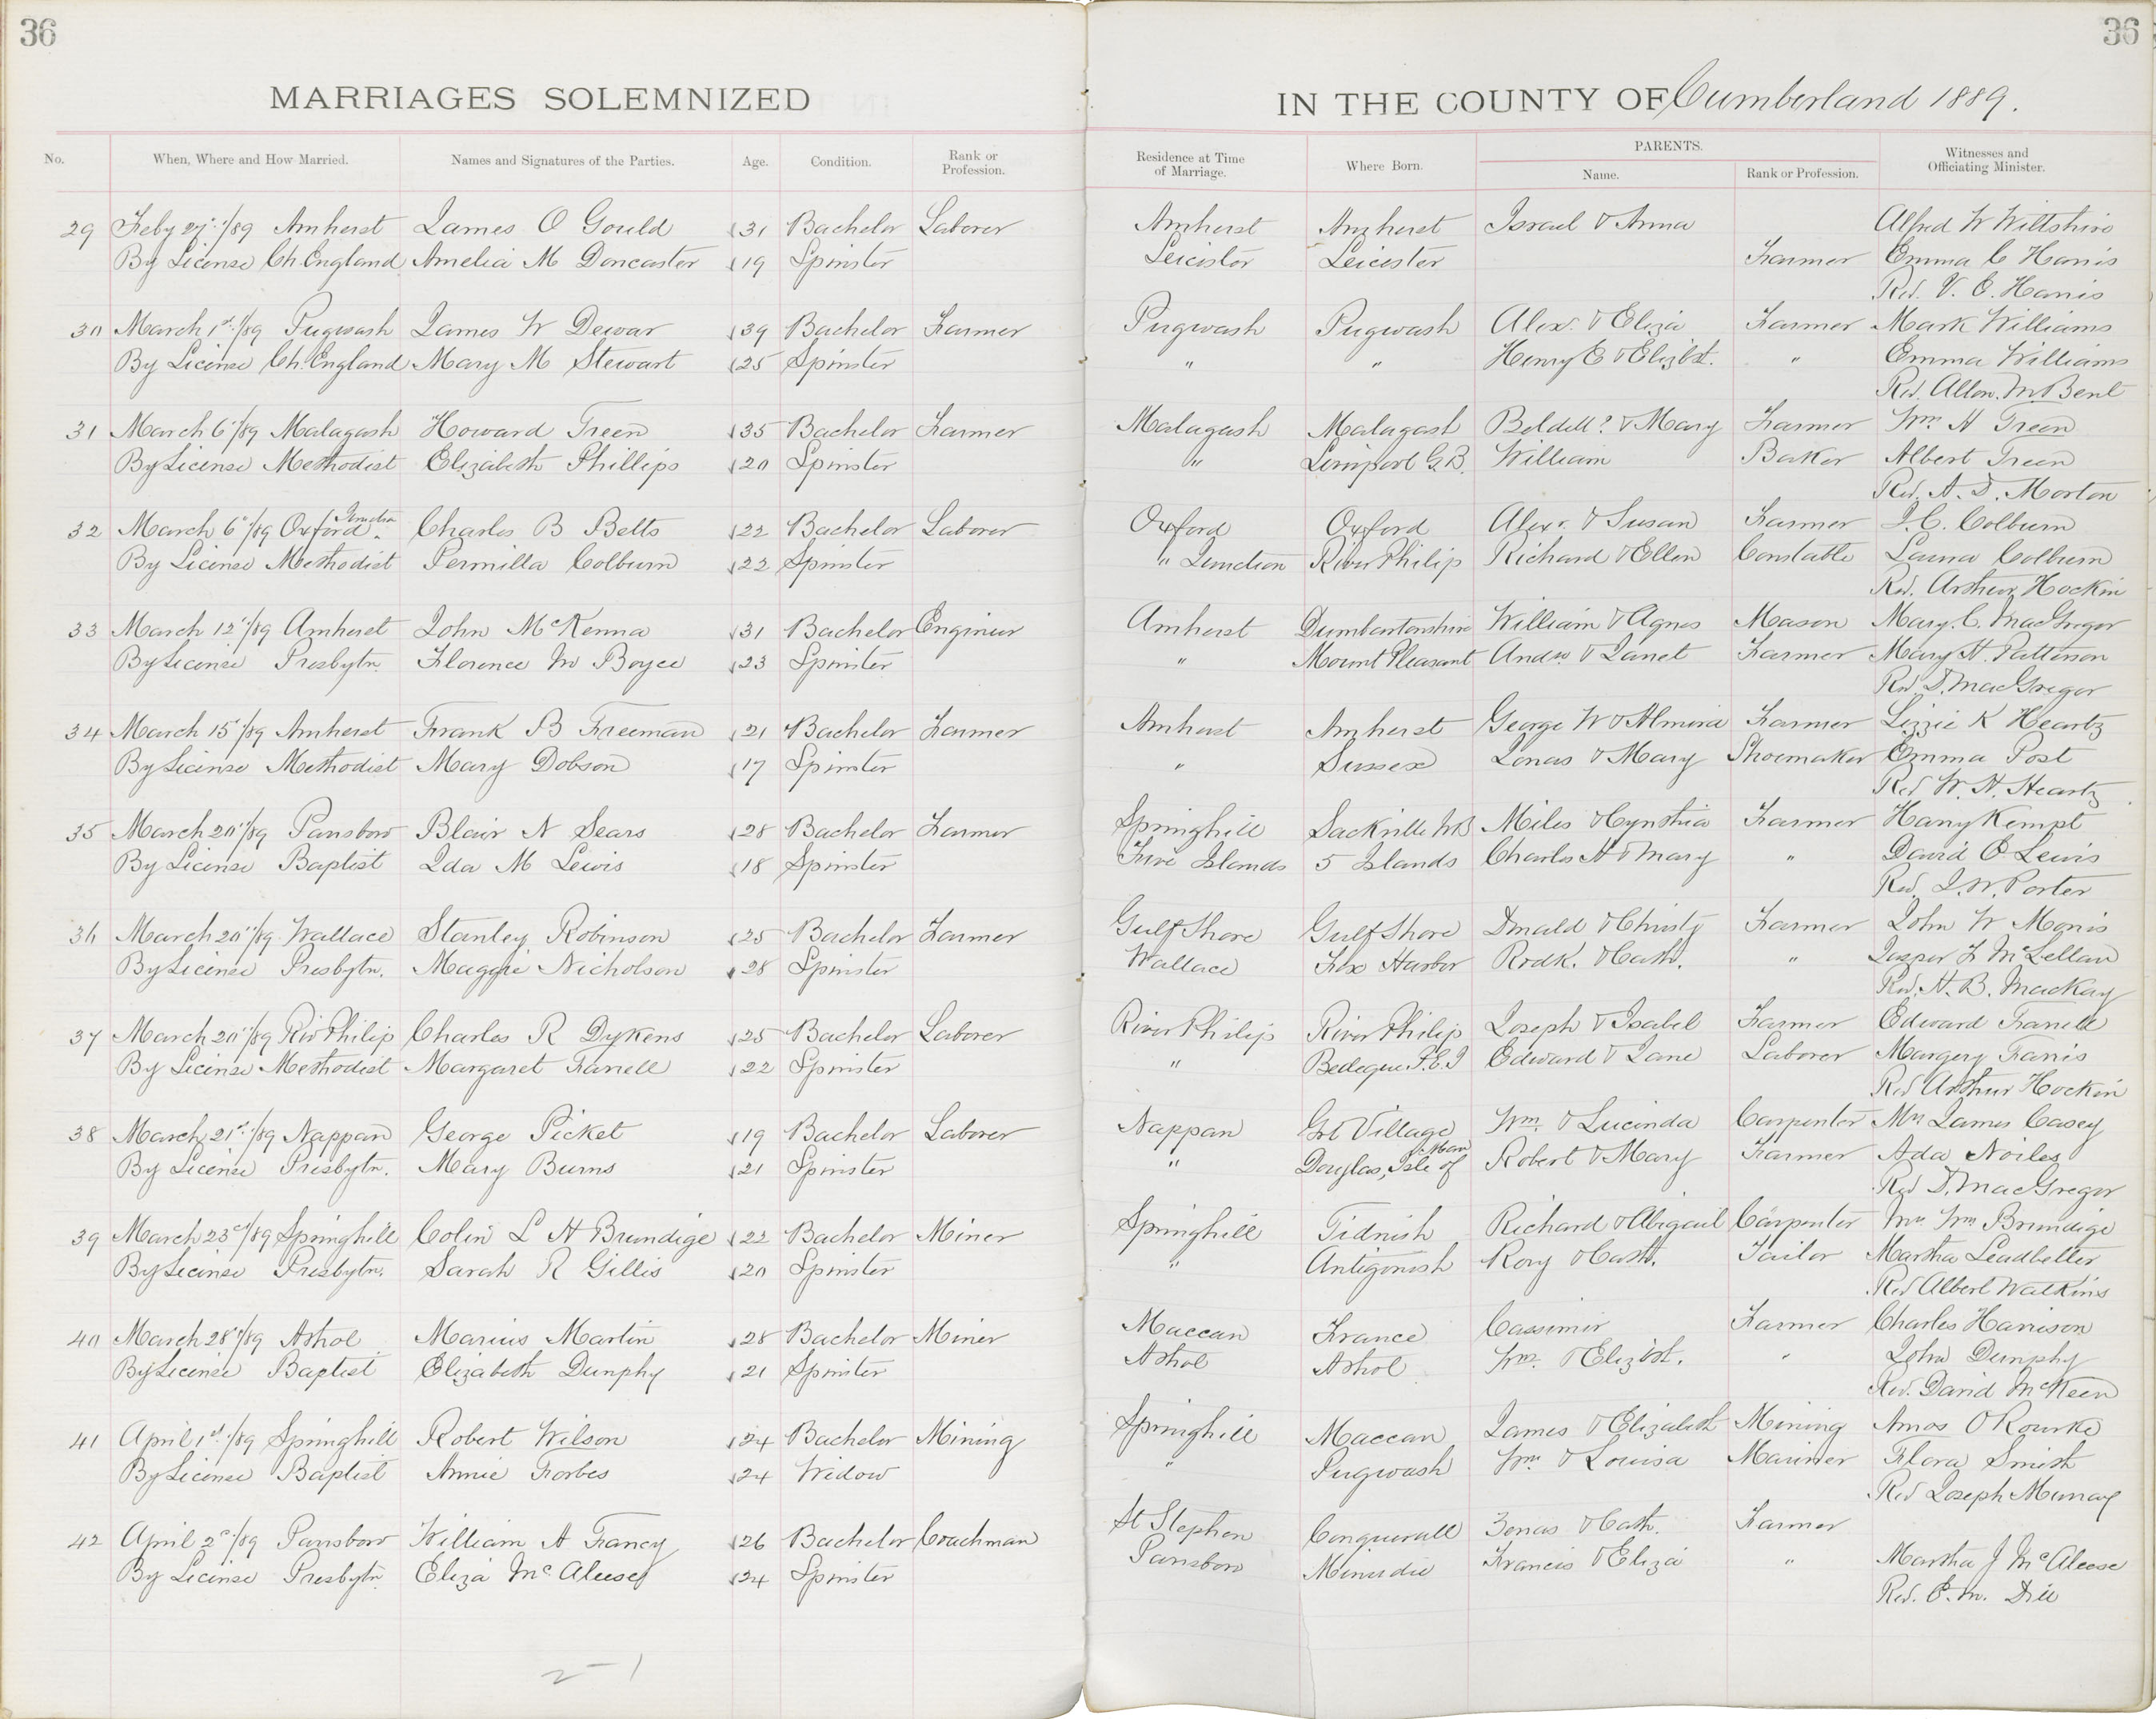 36
36
MARRIAGES SOLEMNIZED IN THE COUNTY OF Cumberland 1889.
No. When, Where and How Married. Names and Signatures of the Parties. Age. Condition. Rank or Profession. Residence at Time of Marriage. Where Born. PARENTS. Name. Rank or Profession. Witnesses and Officiating Minister.
29 Feby 27"/89 Amherst James O Gould 31 Bachelor Laborer Amherst Amherst Israel & Anna Alfred W Wiltshire
By License Ch. England Amelia M Doncaster 19 Spinster Leicister Leicester Farmer Emma C Harris
Rev. V. E. Harris
30 March 1st/89 Pugwash James W Dewar 39 Bachelor Farmer Pugwash Pugwash Alex. & Eliza Farmer Mark Williams
By License Ch. England Mary M Stewart 25 Spinster " " Henry E & Elizbt. " Emma Williams
Rev. Allan. M. Bent
31 March 6"/89 Malagash Howard Treen 35 Bachelor Farmer Malagash Malagash Beldell? & Mary Farmer Wm. H Treen
By License Methodist Elizabeth Phillips 20 Spinster " Liverpool G.B. William Baker Albert Treen
Rev. A. D. Morton
32 March 6"/89 Oxford Junction Charles B Betts 22 Bachelor Laborer Oxford Oxford Alexr. & Susan Farmer J. C. Colburn
By License Methodist Permilla Colburn 22 Spinster " Junction River Philip Richard & Ellen Constable Laura Colburn
Rev. Arthur Hockin
33 March 12"/89 Amherst John McKenna 31 Bachelor Engineer Amherst Dumbartonshire William & Agnes Mason Mary. C. MacGregor
By License Presbytn. Florence M Boyce 23 Spinster " Mount Pleasant Andw. & Janet Farmer Mary H. Patterson
Rev D. MacGregor
34 March 15"/89 Amherst Frank B Freeman 21 Bachelor Farmer Amherst Amherst George W & Almira Farmer Lizzie K Heartz
By License Methodist Mary Dobson 17 Spinster " Sussex Jonas & Mary Shoemaker Emma Post
Rev W. H. Heartz
35 March 20"/89 Parrsboro Blair N Sears 28 Bachelor Farmer Springhill Sackville NB Miles & Cynthia Farmer Harry Kempt
By License Baptist Ida M Lewis 18 Spinster Five Islands 5 Islands Charles H & Mary " David O Lewis
Rev. J. W. Porter
36 March 20"/89 Wallace Stanley Robinson 25 Bachelor Farmer Gulf Shore Gulf Shore Donald & Christy Farmer John W Morris
By License Presbytn. Maggie Nicholson 28 Spinster Wallace Fox Harbor Rodk. & Cath. " Jesper F McLellan
Rev. H. B. MacKay
37 March 20"/89 Riv Philip Charles R Dykens 25 Bachelor Laborer River Philip River Philip Joseph & Isabel Farmer Edward Farrell
By License Methodist Margaret Farrell 22 Spinster " Bedeque P.E.I Edward & Jane Laborer Margery Farris
Rev Arthur Hockin
38 March 21st/89 Nappan George Picket 19 Bachelor Laborer Nappan Grt Village Wm. & Lucinda Carpenter Mrs James Casey
By License Presbytn. Mary Burns 21 Spinster " Douglas, Isle of Man Robert & Mary Farmer Ada Noiles
Rev D. MacGregor
39 March 23d/89 Springhill Colin L H Brundige 22 Bachelor Miner Springhill Tidnish Richard & Abigail Carpenter Mrs Wm Brundige
By License Presbytn. Sarah R Gillis 20 Spinster " Antigonish Rory & Cath. Tailor Martha Leadbetter
Rev Albert Watkins
40 March 28"/89 Athol Marius Martin 28 Bachelor Miner Maccan France Cassimir Farmer Charles Harrison
By License Baptist Elizabeth Dunphy 21 Spinster Athol Athol Wm. & Elizbt. " John Dunphy
Rev. David McKeen
41 April 1st/89 Springhill Robert Wilson 24 Bachelor Mining Springhill Maccan James & Elizabeth Mining Amos O Rourke
By License Baptist Annie Forbes 24 Widow " Pugwash Wm. & Louisa Mariner Flora Smith
Rev Joseph Murray
42 April 2d/89 Parrsboro William A Francy 26 Bachelor Coachman St Stephen Conquerall Zenas & Cath. Farmer
By License Presbytn Eliza McAleese 24 Spinster Parrsboro Minudie Francis & Eliza " Martha J McAleese
Rev. E. M. Dill
2-1